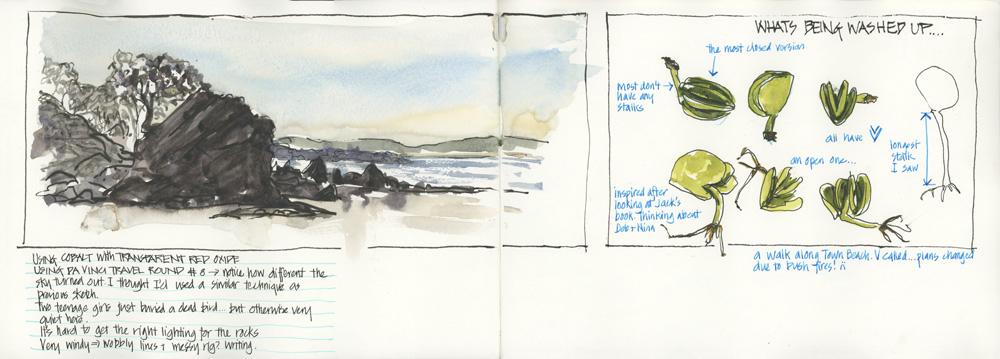 USING COBALT WITH TRANSPARENT RED OXIDE
USING DA VINCI TRAVEL ROUND # 8 → notice how different the
sky turned out I thought I'd used a similar technique as
previous sketch.
Two teenage girls just buried a dead bird... but otherwise very
quiet here.
It's hard to get the right lighting for the rocks
Very windy ⇒ wobbly lines + messy writing.
WHATS BEING WASHED UP....
the most closed version
most don't
have any
stalks
all have
longest
stalk
I saw
an open one...
inspired after
looking at Jack's
book. Thinking about
Deb + Nina
a walk along Town Beach. V called...plans changed
due to bush fires!